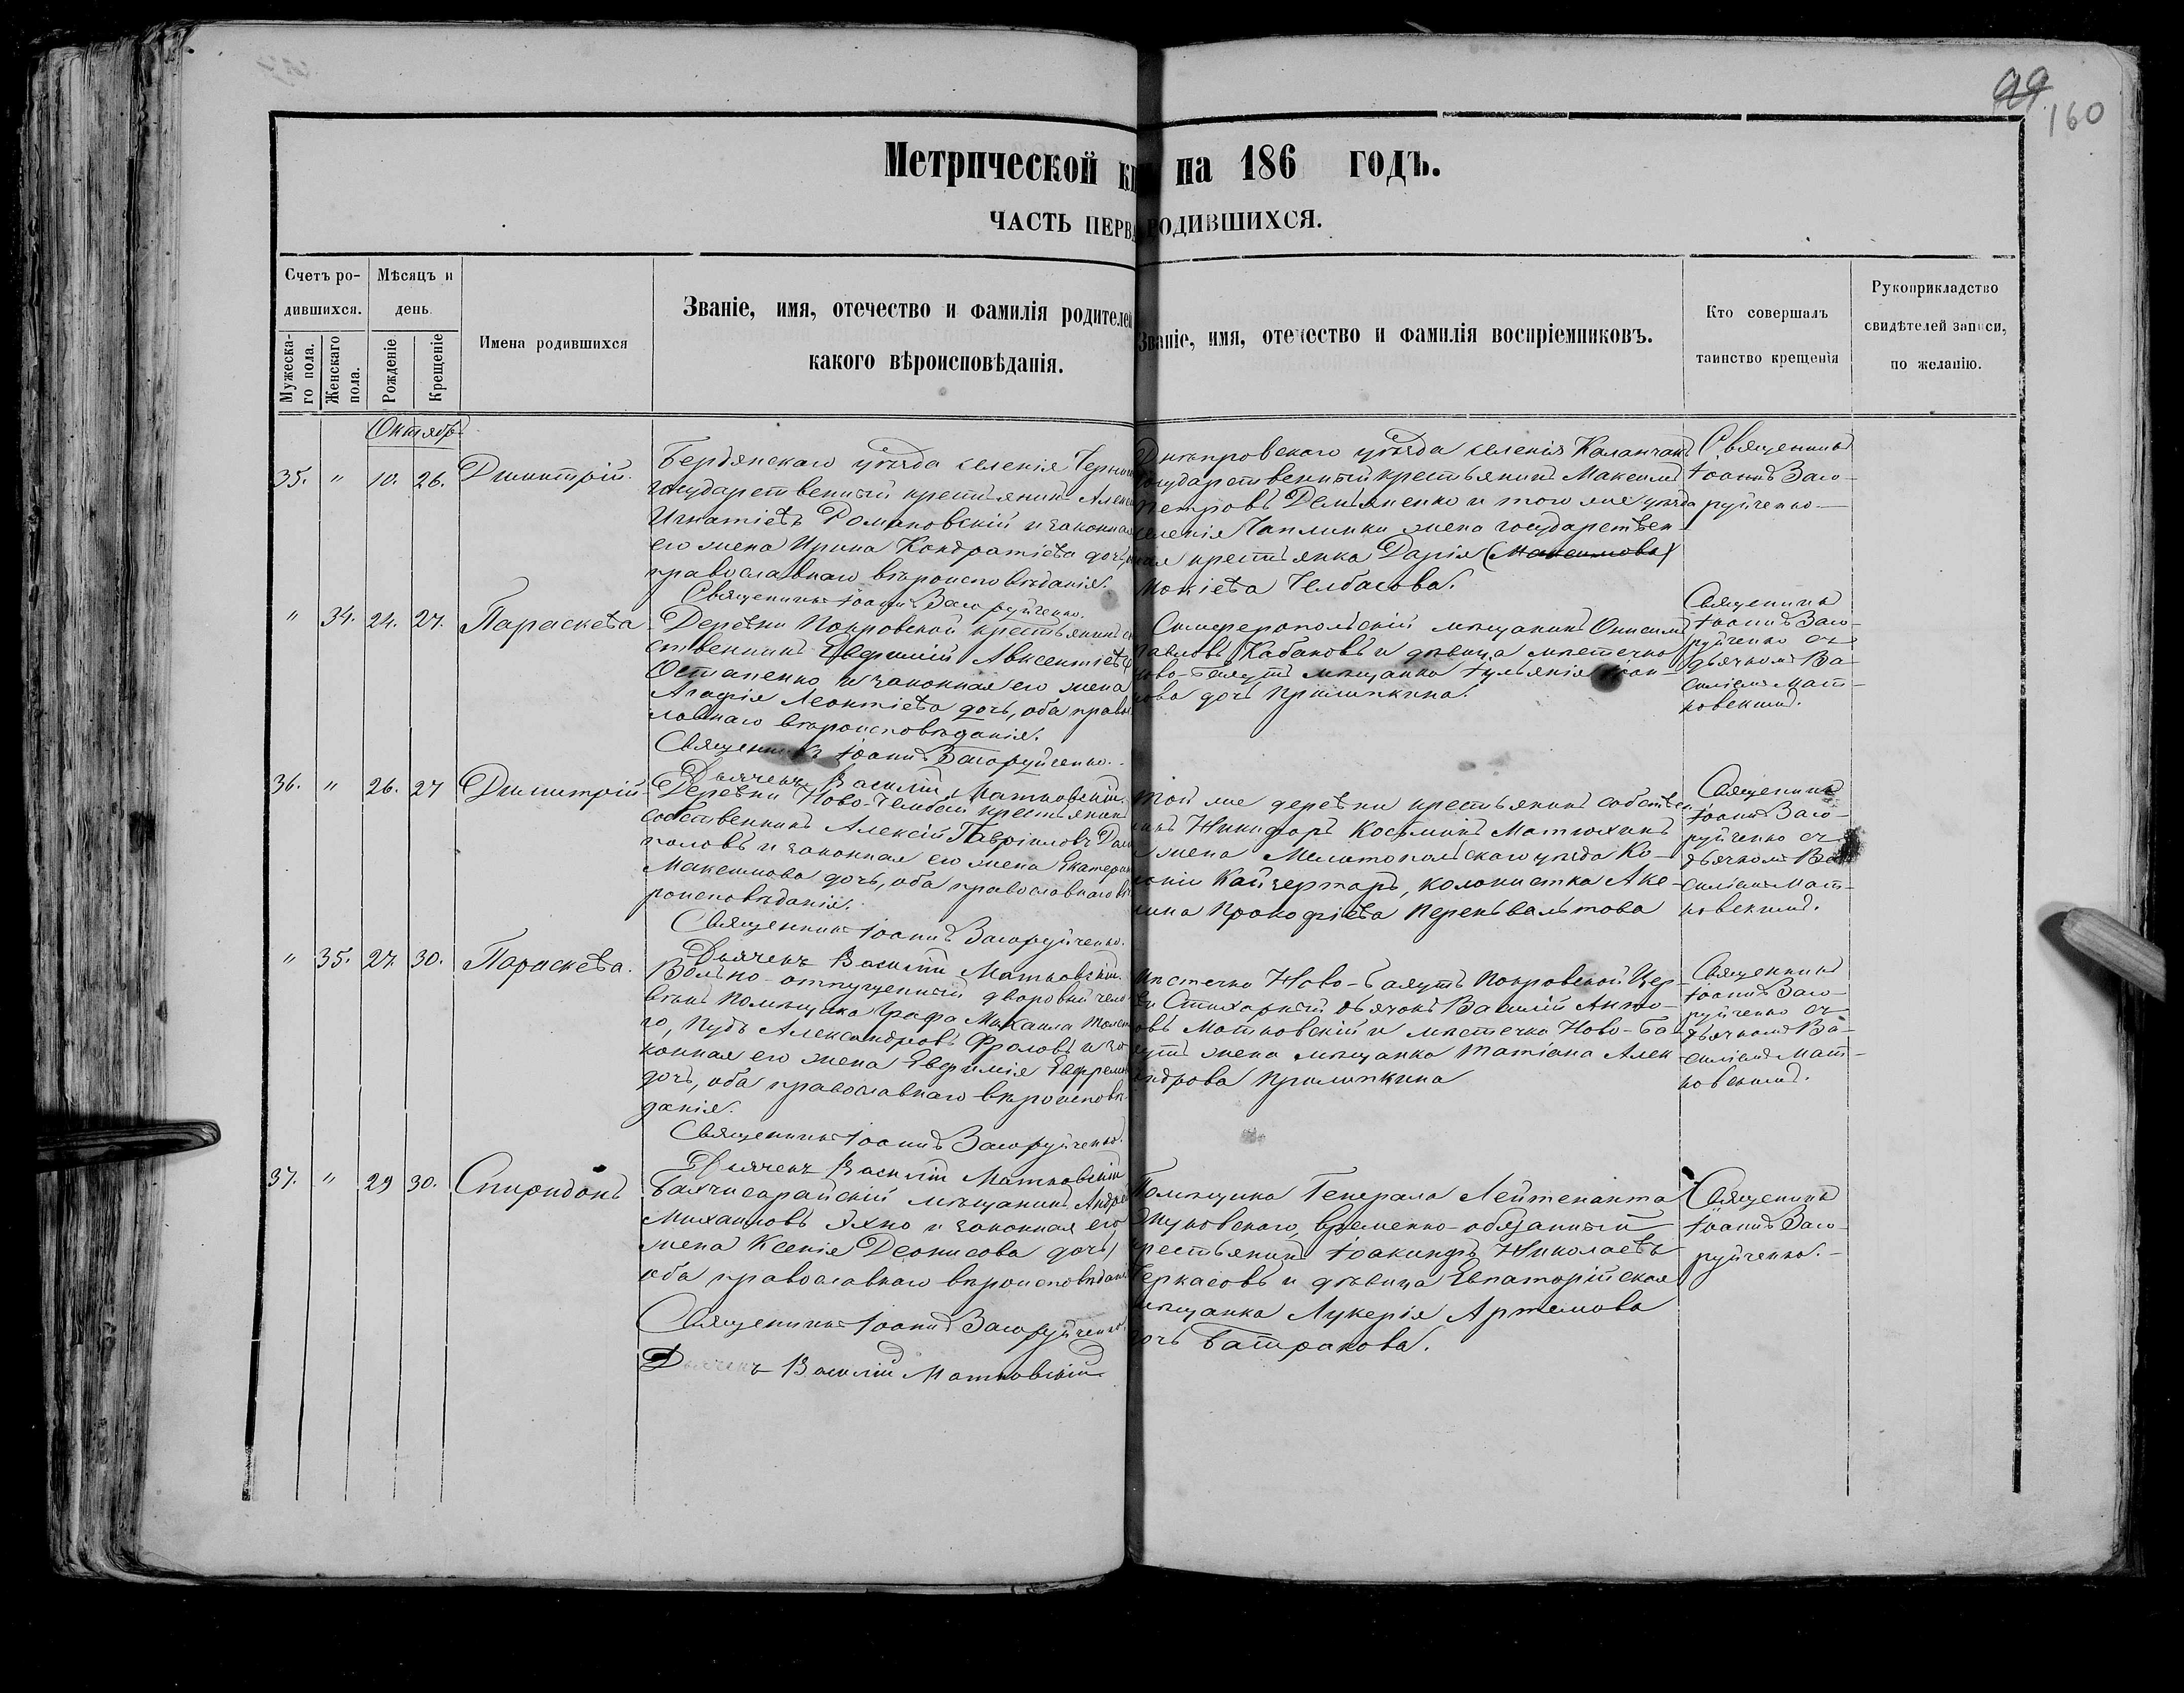 99
160
Метрической кн на 186 годъ.
ЧАСТЬ ПЕРВА РОДИВШИХСЯ.
Счетъ родившихся.
Мужескаго пола.
Женскаго пола.
Мѣсяцъ и день.
Рожденіе
Крещеніе
Имена родившихся
Званіе, имя, отечество и фамилія родителей
какого вѣроисповѣданія.
Званіе, имя, отечество и фамилія воспріемниковъ.
Кто совершалъ
таинство крещенія
Рукоприкладство
свидѣтелей записи,
по желанію.
Октябр
35. " 10. 26. Димитрій.
Бердянскаго уѣзда селенія
государственный крестьянинъ
Игнатіевъ Романовскій и законная
его жена Ирина Кондратіева дочь
православнаго вѣроисповѣданія.
Священникъ Іоаннъ Загоруйченко.
Днѣпровскаго уѣзда селенія Каланчакъ
государственный крестьянинъ Максимъ
Петровъ Демьяненко и того же уѣзда
селенія Чаплинки жена государствен-
ная крестьянка Дарія (Максимова)
Мокіева Челбасова.
Священникъ
Іоаннъ Заго-
руйченко
" 34. 24. 27. Параскева
Деревни Покровской крестьянинъ
ственникъ Евфимій Авксентіевъ
Остапенко и законная его жена
Агафія Леонтіева дочь, оба право
славнаго вѣроисповѣданія.
Священникъ Іоаннъ Загоруйченко.
Дьячекъ Василій Матковскій.
Симферопольскій мѣщанинъ Онисимъ
Павловъ Кабаковъ и дѣвица мѣстечка
Ново-Баяутъ мѣщанка Іульянія Іоан-
нова дочь Прилипкина.
Священникъ
Іоаннъ Заго-
руйченко съ
дьячкомъ Ва-
силіемъ Мат-
ковскимъ.
36. " 26. 27 Димитрій
Деревни Ново-Челбасы крестьянинъ
собственникъ Алексій Гавріиловъ
половъ и законная его жена Екатерин
Максимова дочь, оба православнаго вѣ
роисповѣданія.
Священникъ Іоаннъ Загоруйченко.
Дьячекъ Василій Матковскій.
Той же деревни крестьянинъ собствен
никъ Никифоръ Косьминъ Матюхинъ
и жена Мелитопольскаго уѣзда Ко-
лоніи Кайзертаръ, колонистка Аке-
лина Прокофіева
Священникъ
Іоаннъ Заго-
руйченко съ
дьячкомъ Ва-
силіемъ Мат-
ковскимъ.
" 35. 27. 30. Параскева.
Вольно-отпущенный дворовый чело
вѣкъ помѣщика Графа Михаила Толсто
го, Пудъ Александровъ Фроловъ и за
конная его жена Евфимія Ефремов
дочь, оба православнаго вѣроисповѣ-
данія.
Священникъ Іоаннъ Загоруйченко.
Дьячекъ Василій Матковскій
Мѣстечка Ново-Баяутъ Покровской Цер-
кви Стихарный дьячокъ Василій Анто-
новъ Матковскій и мѣстечка Ново-Ба-
яутъ жена мѣщанка Татіана Алек-
сандрова Прилипкина
Священникъ
Іоаннъ Заго-
руйченко съ
дьячкомъ Ва-
силіемъ Мат-
ковскимъ.
37. " 29 30. Спиридонъ
Бахчисарайскій мѣщанинъ Андре
Михаиловъ Яхно и законная его
жена Ксенія Деонисова дочь,
оба православнаго вѣроисповѣдан
Священникъ Іоаннъ Загоруйченко.
Дьячекъ Василій Матковскій
Помѣщика Генерала Лейтенанта
Жуковскаго, временно-обязанный
крестьянинъ Іоакинфъ Николаевъ
Черкасовъ и дѣвица Евпаторійская
мѣщанка Лукерія Артемова
дочь Батракова.
Священникъ
Іоаннъ Заго-
руйченко.